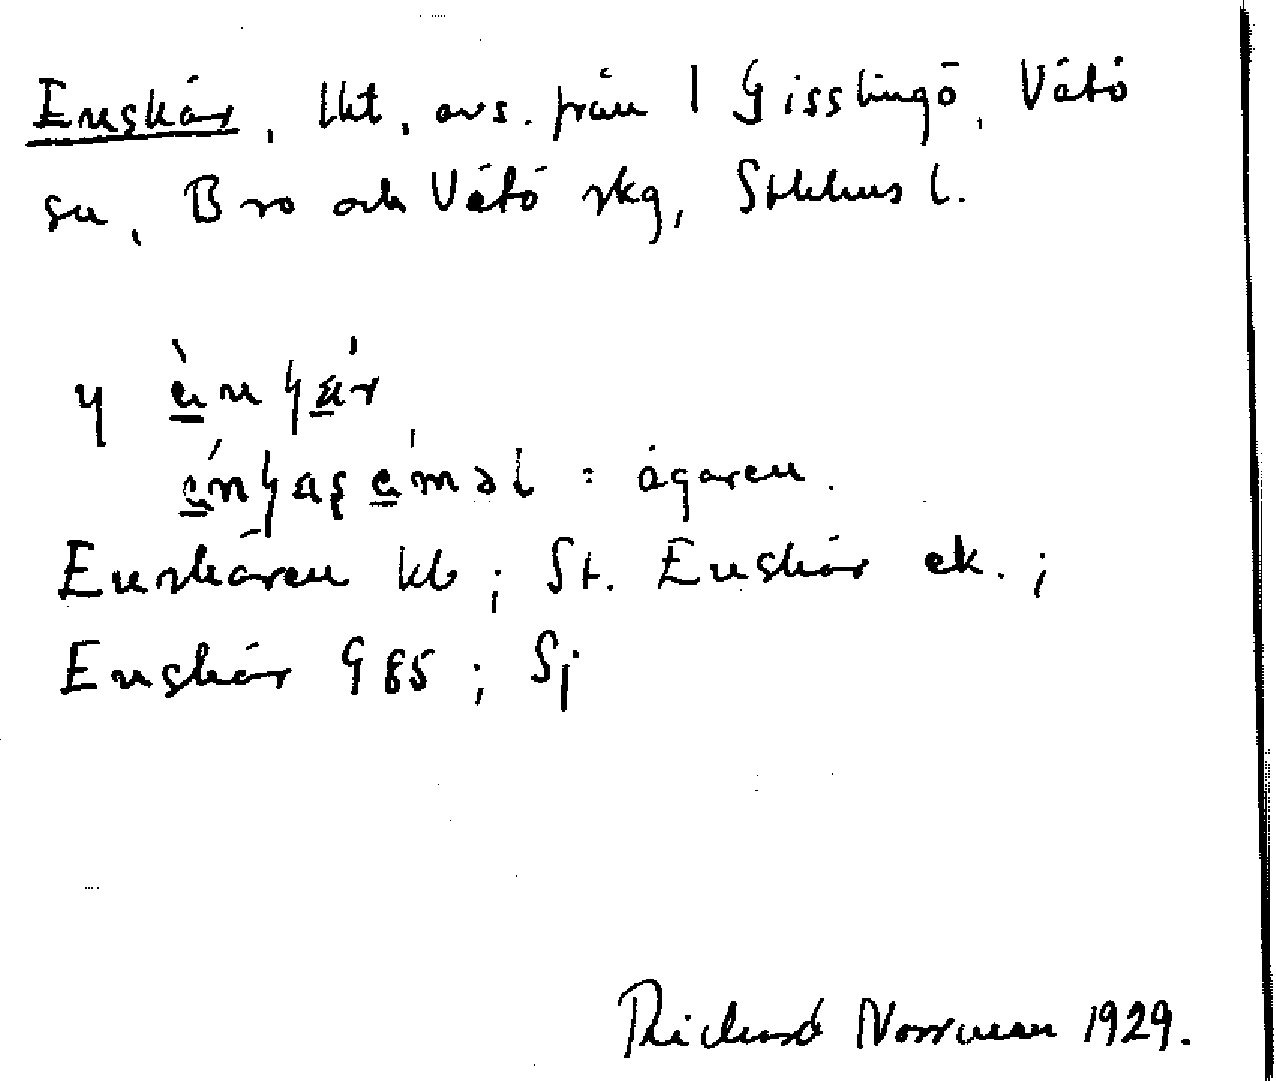 Enskär, lht, avs. från 1 Gisslingö, Vätö
sn, Bro och Vätö skg, Stkhlms l.
Enskären kb; St. Enskär ek.;
Enskär G 85; Sj
= ägaren.
Richard Norrman 1929.